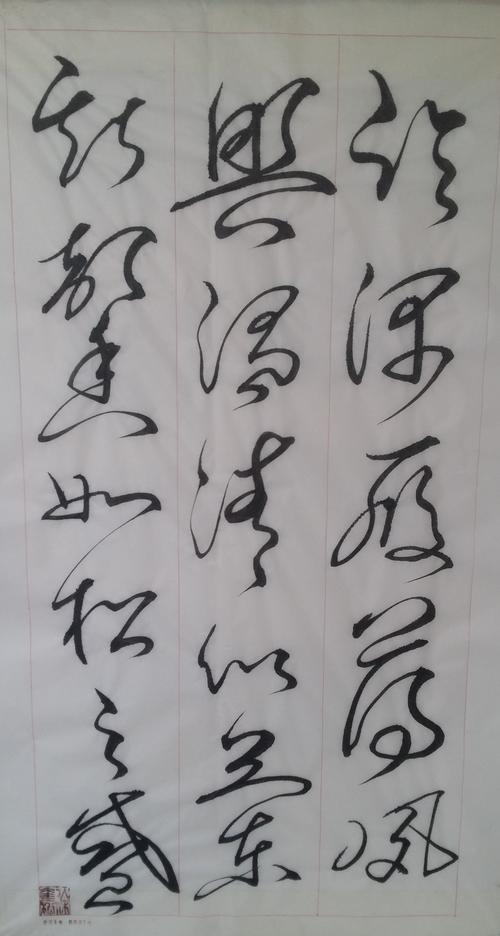 临深履薄夙
兴温凊似兰
斯馨如松之盛